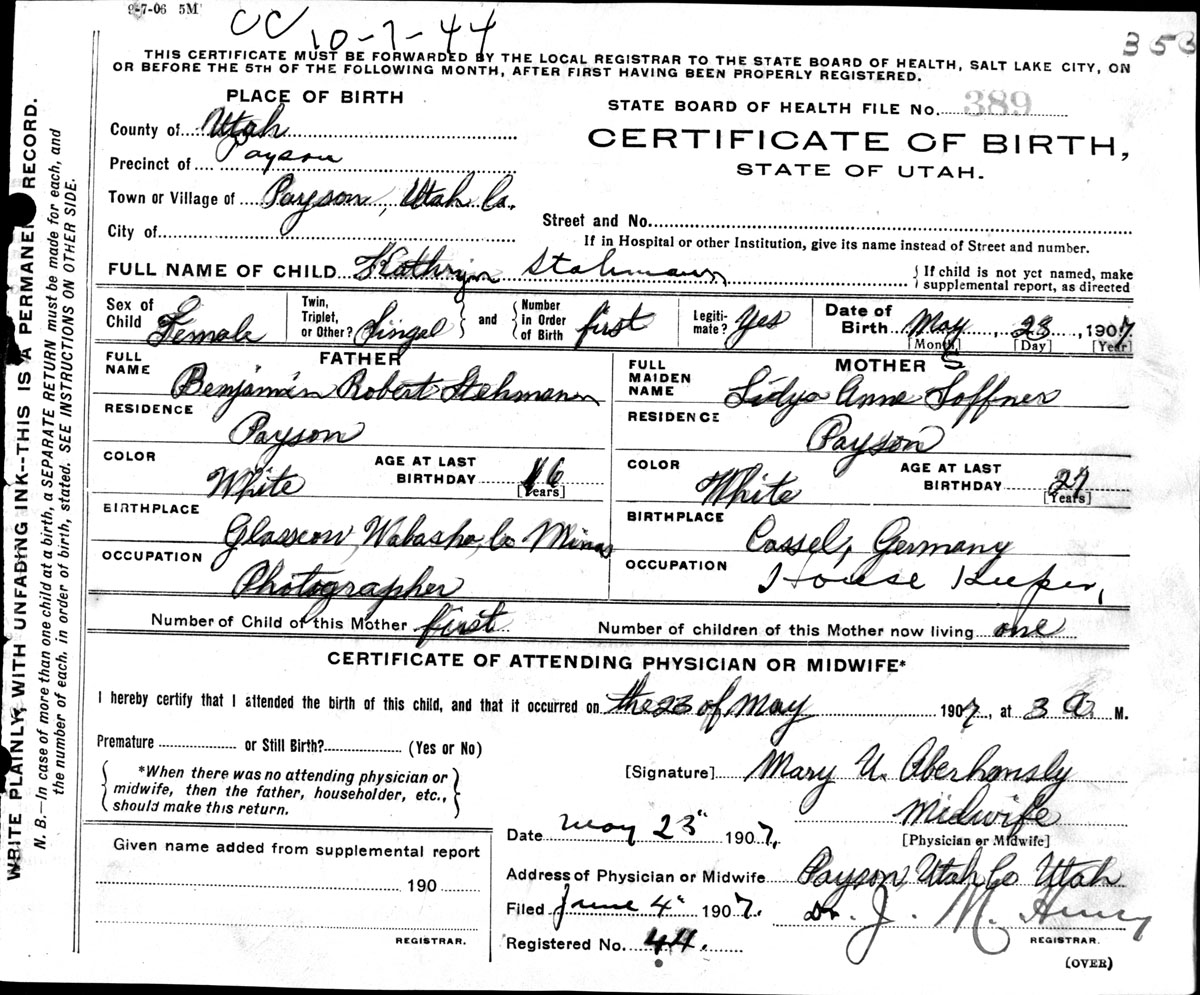 9-7-06 5M
CC 10-7-44
353
THIS CERTIFICATE MUST BE FORWARDED BY THE LOCAL REGISTRAR TO THE STATE BOARD OF HEALTH, SALT LAKE CITY, ON
OR BEFORE THE 5TH OF THE FOLLOWING MONTH, AFTER FIRST HAVING BEEN PROPERLY REGISTERED.
PLACE OF BIRTH
STATE BOARD OF HEALTH FILE No. 389
County of Utah
CERTIFICATE OF BIRTH,
STATE OF UTAH.
Precinct of Payson
Town or Village of Payson, Utah Co.
Street and No.
City of
If in Hospital or other Institution, give its name instead of Street and number.
FULL NAME OF CHILD Kathryn Stahmann
{ If child is not yet named, make
supplemental report, as directed
Sex of Child Female
Twin, Triplet, or Other? Singel } and { Number in Order of Birth first
Legiti- mate? Yes
Date of Birth May, 23, 1907
[Month] [Day] [Year]
FATHER
FULL NAME Benjamin Robert Stehmann
RESIDENCE Payson
COLOR White
AGE AT LAST BIRTHDAY
[Years]
BIRTHPLACE Glasscow, Wabasha, Co Minas
OCCUPATION Photographer
MOTHER
FULL MAIDEN NAME Lidya Anne Soffner
S
RESIDENCE Payson
COLOR White
AGE AT LAST BIRTHDAY 27
[Years]
BIRTHPLACE Cassel, Germany
OCCUPATION House Keeper,
Number of Child of this Mother first
Number of children of this Mother now living one
CERTIFICATE OF ATTENDING PHYSICIAN OR MIDWIFE*
I hereby certify that I attended the birth of this child, and that it occurred on the 23 of May 1907, at 3 A M.
Premature or Still Birth? (Yes or No)
{ *When there was no attending physician or
midwife, then the father, householder, etc.,
should make this return. }
[Signature] Mary U. Oberhansly
Midwife
[Physician or Midwife]
Date May 23" 1907.
Address of Physician or Midwife Payson, Utah Co Utah
Filed June 4" 1907.
Dr. J. M. Henry
REGISTRAR.
Registered No. 44.
(OVER)
Given name added from supplemental report
190
REGISTRAR.
WRITE PLAINLY, WITH UNFADING INK--THIS IS A PERMANENT RECORD.
N. B.—In case of more than one child at a birth, a SEPARATE RETURN must be made for each, and
the number of each, in order of birth, stated. SEE INSTRUCTIONS ON OTHER SIDE.